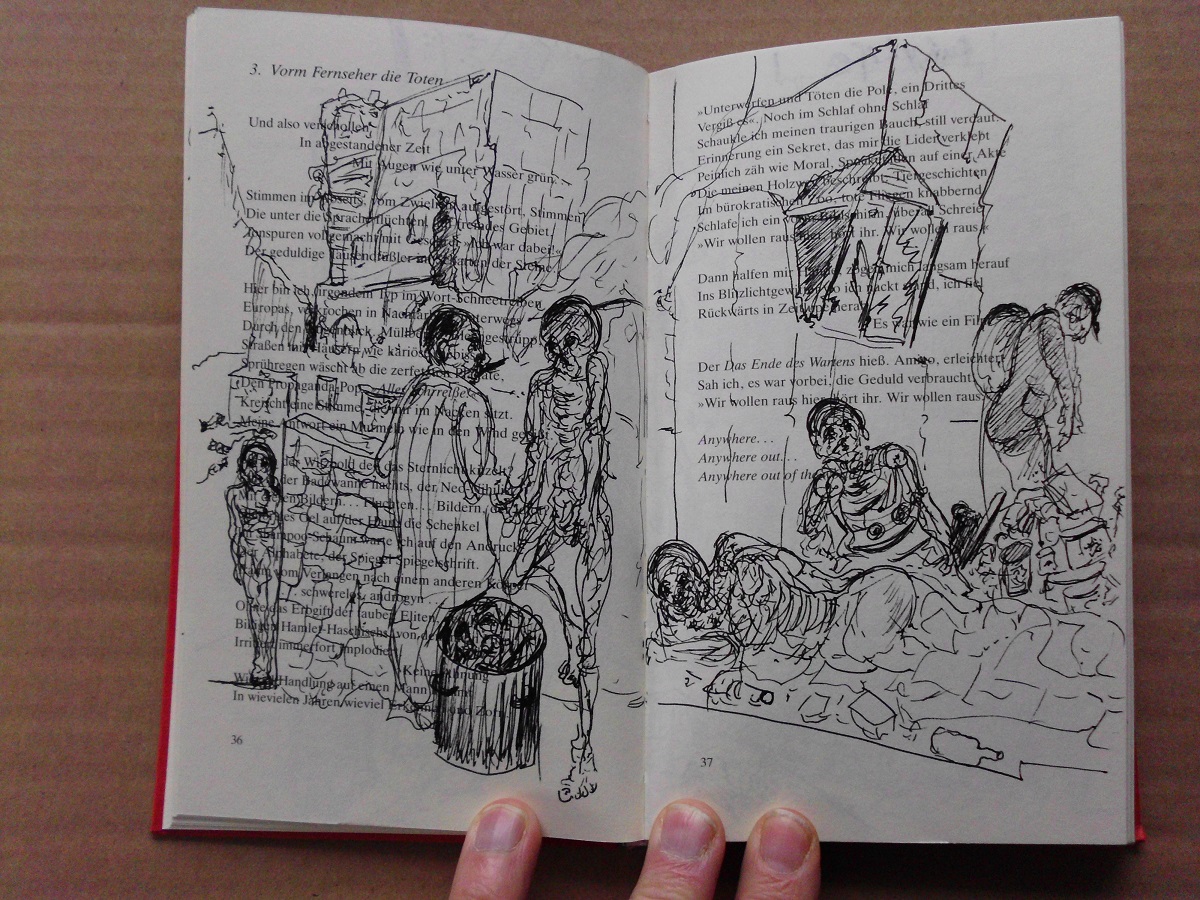 3. Vorm Fernseher die Toten
Und also verschollen
In abgestandener Zeit
Mit Augen wie unter Wasser grün. . .
Stimmen im Zwielicht aufgestört, Stimmen
Die unter die Sprache flüchten, in fremdes Gebiet,
Tonspuren vollgemacht mit »Ich war dabei!«
Der geduldige Tausendfüßler im der Steine.
Hier bin ich, irgendein Typ im Wort-Schneetreiben
Europas, verkrochen in unterwegs
Durch den Müllberg,
Straßen mit Häusern wie kariöse
Sprühregen wäscht ab die zerfetzten Plakate,
Den Propaganda-Pop. Alles
Kreischt eine Stimme, die mir im Nacken sitzt.
Meine Antwort ein Murmeln wie in den Wind
der den das Sternlicht kitzelt?
der Badewanne nachts, der
Mit Bildern. . . Fluchten. . . Bildern,
Gel auf der Haut, die Schenkel
Shampoo-Schaum warte ich auf den Andruck
Der Alphabete, der Spiegel Spiegelschrift.
Traum vom Verlangen nach einem anderen
. . . schwerelos, androgyn . . .
Ohne das Erbgift der Eliten,
Billigen Hamlet-Haschischs, von
immerfort implodiert
Keine Ahnung
Handlung auf einen Mann
In wievielen Jahren wieviel und Zorn
36
»Unterwerfen und Töten die Pole, ein Drittes
Vergiß es«. Noch im Schlaf ohne Schlaf
Schaukle ich meinen traurigen Bauch, still verdaut
Erinnerung ein Sekret, das mir die Lider verklebt
Peinlich zäh wie Moral, auf einer Akte
Die meinen Holzweg beschreibt. Tiergeschichten
Im bürokratischen Zoo, tote Fliegen knabbernd
Schlafe ich ein vorm Bildschirm, überall Schreie
»Wir wollen raus hier, hört ihr. Wir wollen raus.«
Dann halfen mir zogen mich langsam herauf
Ins Blitzlichtgewitter, wo ich nackt stand, ich fiel
Rückwärts in
Es war wie ein Film
Der Das Ende des Wartens hieß. Amigo, erleichtert
Sah ich, es war vorbei, die Geduld verbraucht.
»Wir wollen raus hier, hört ihr. Wir wollen raus.
Anywhere. . .
Anywhere out. . .
Anywhere out of the
37